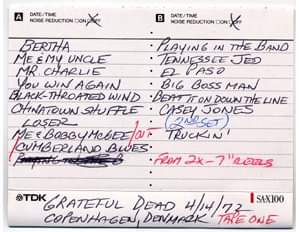 A DATE/TIME
NOISE REDUCTION □ON □OFF
BERTHA
ME & MY UNCLE
MR. CHARLIE
YOU WIN AGAIN
BLACK-THROATED WIND
CHINATOWN SHUFFLE
LOSER
ME & BOBBY MCGEE
CUMBERLAND BLUES
B DATE/TIME
NOISE REDUCTION □ON □OFF
PLAYING IN THE BAND
TENNESSEE JED
EL PASO
BIG BOSS MAN
BEAT IT ON DOWN THE LINE
CASEY JONES
2ND SET
TRUCKIN'
FROM 2X-7" REELS
TDK
SAX100
GRATEFUL DEAD 4/14/72
COPENHAGEN, DENMARK TAPE ONE